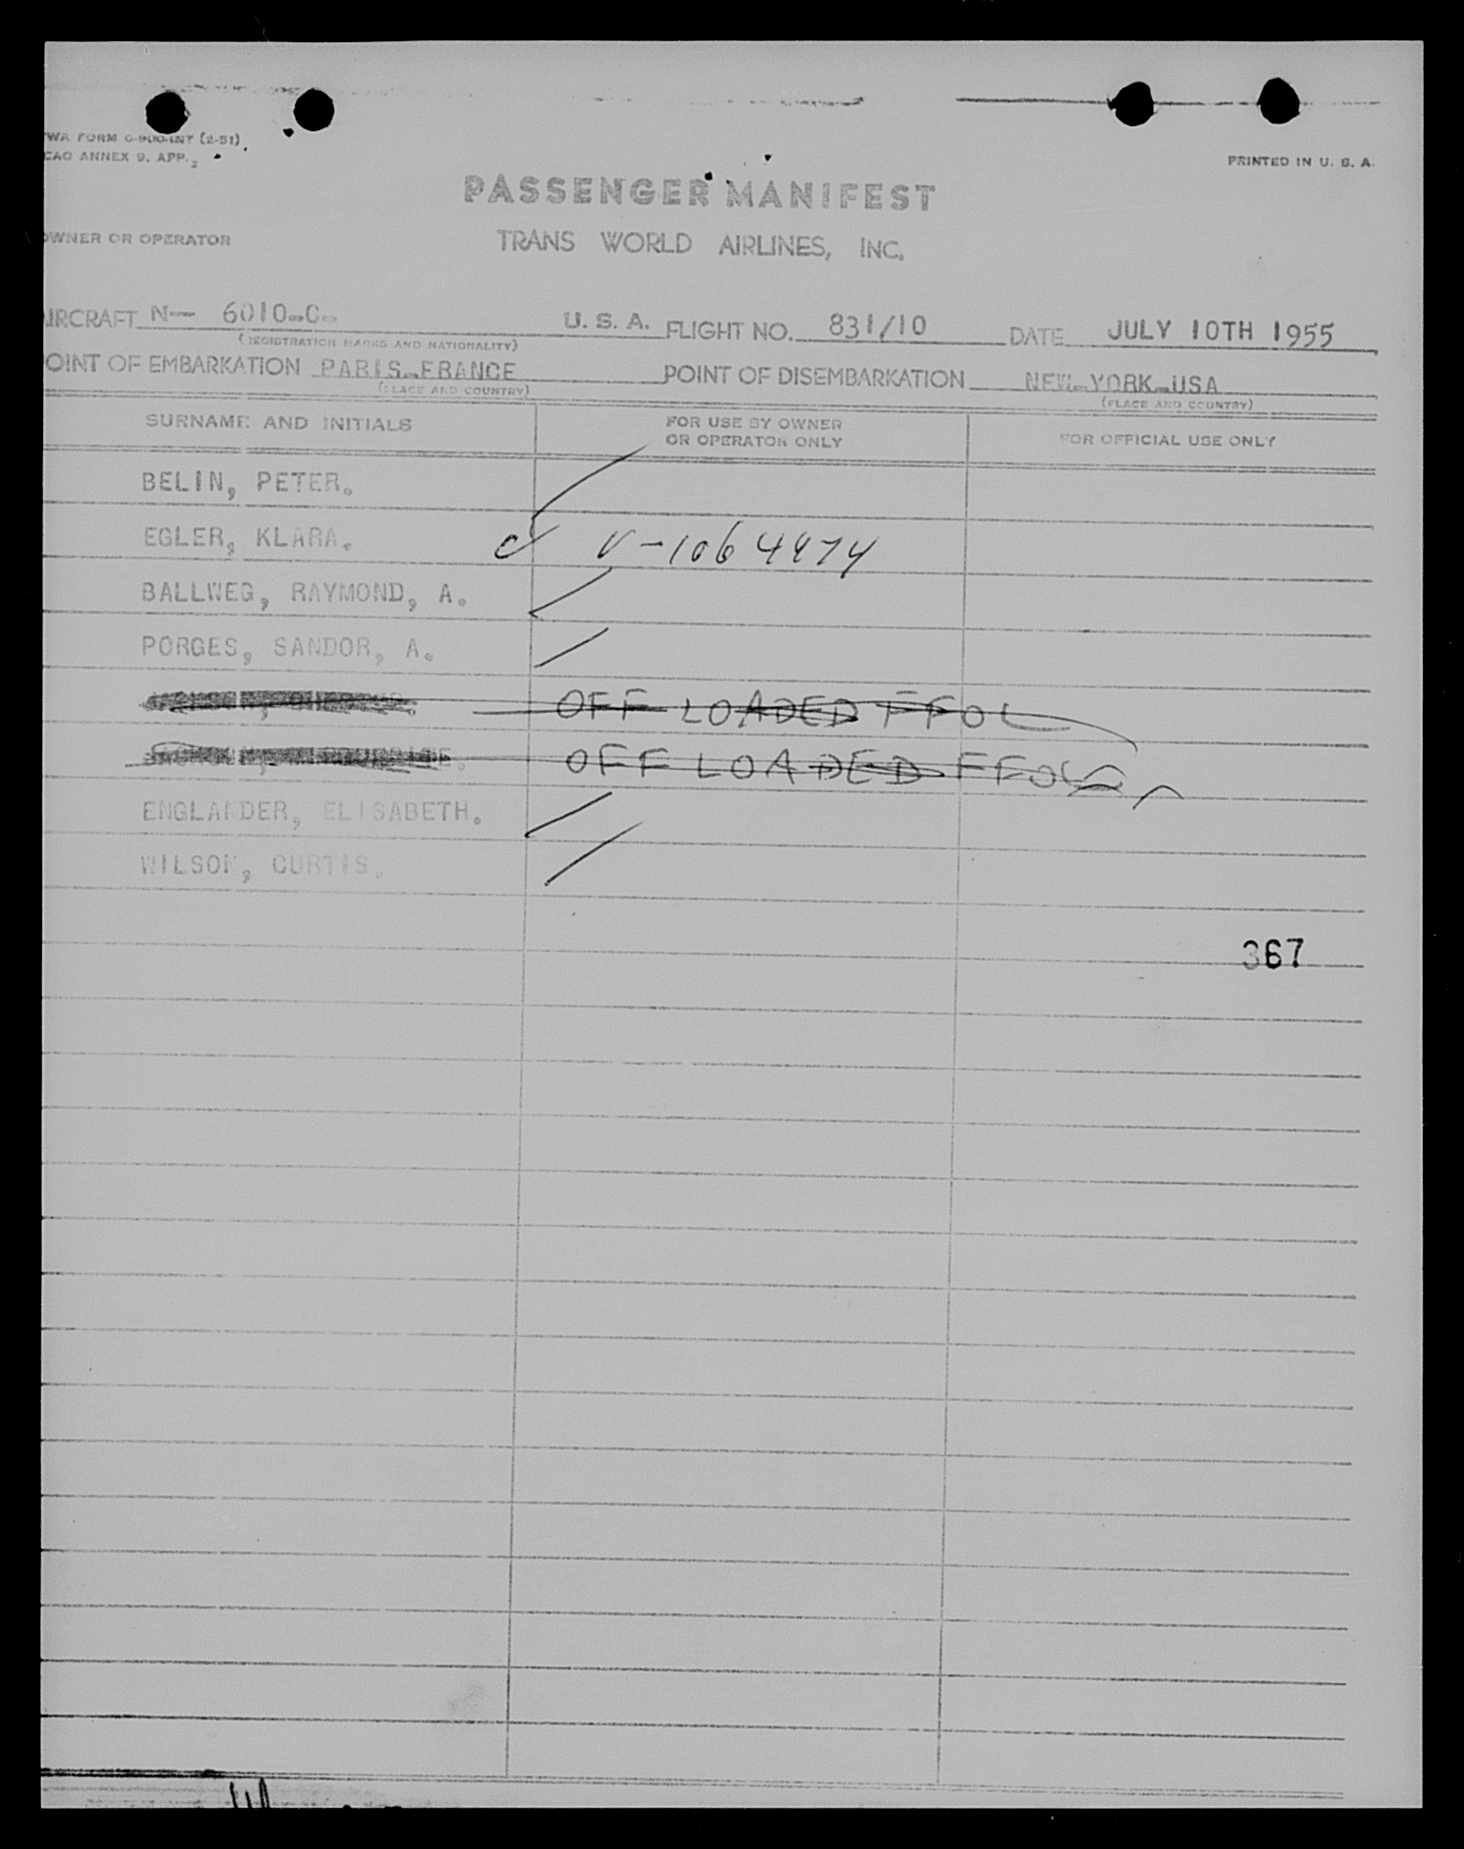 TWA FORM (2-51)
ICAO ANNEX 9, APP.
PRINTED IN U. S. A.
PASSENGER MANIFEST
OWNER OR OPERATOR
TRANS WORLD AIRLINES, INC.
AIRCRAFT N— 6010-C. U. S. A. FLIGHT NO. 831/10 DATE JULY 10TH 1955
(REGISTRATION MARKS AND NATIONALITY)
POINT OF EMBARKATION PARIS-FRANCE POINT OF DISEMBARKATION NEW-YORK-USA
(PLACE AND COUNTRY) (PLACE AND COUNTRY)
SURNAME AND INITIALS FOR USE BY OWNER OR OPERATOR ONLY FOR OFFICIAL USE ONLY
BELIN, PETER.
EGLER, KLARA. V-1064474
BALLWEG, RAYMOND, A.
PORGES, SANDOR, A.
OFF LOADED FFOL
OFF LOADED FFOL
ENGLANDER, ELISABETH.
WILSON, CURTIS.
367